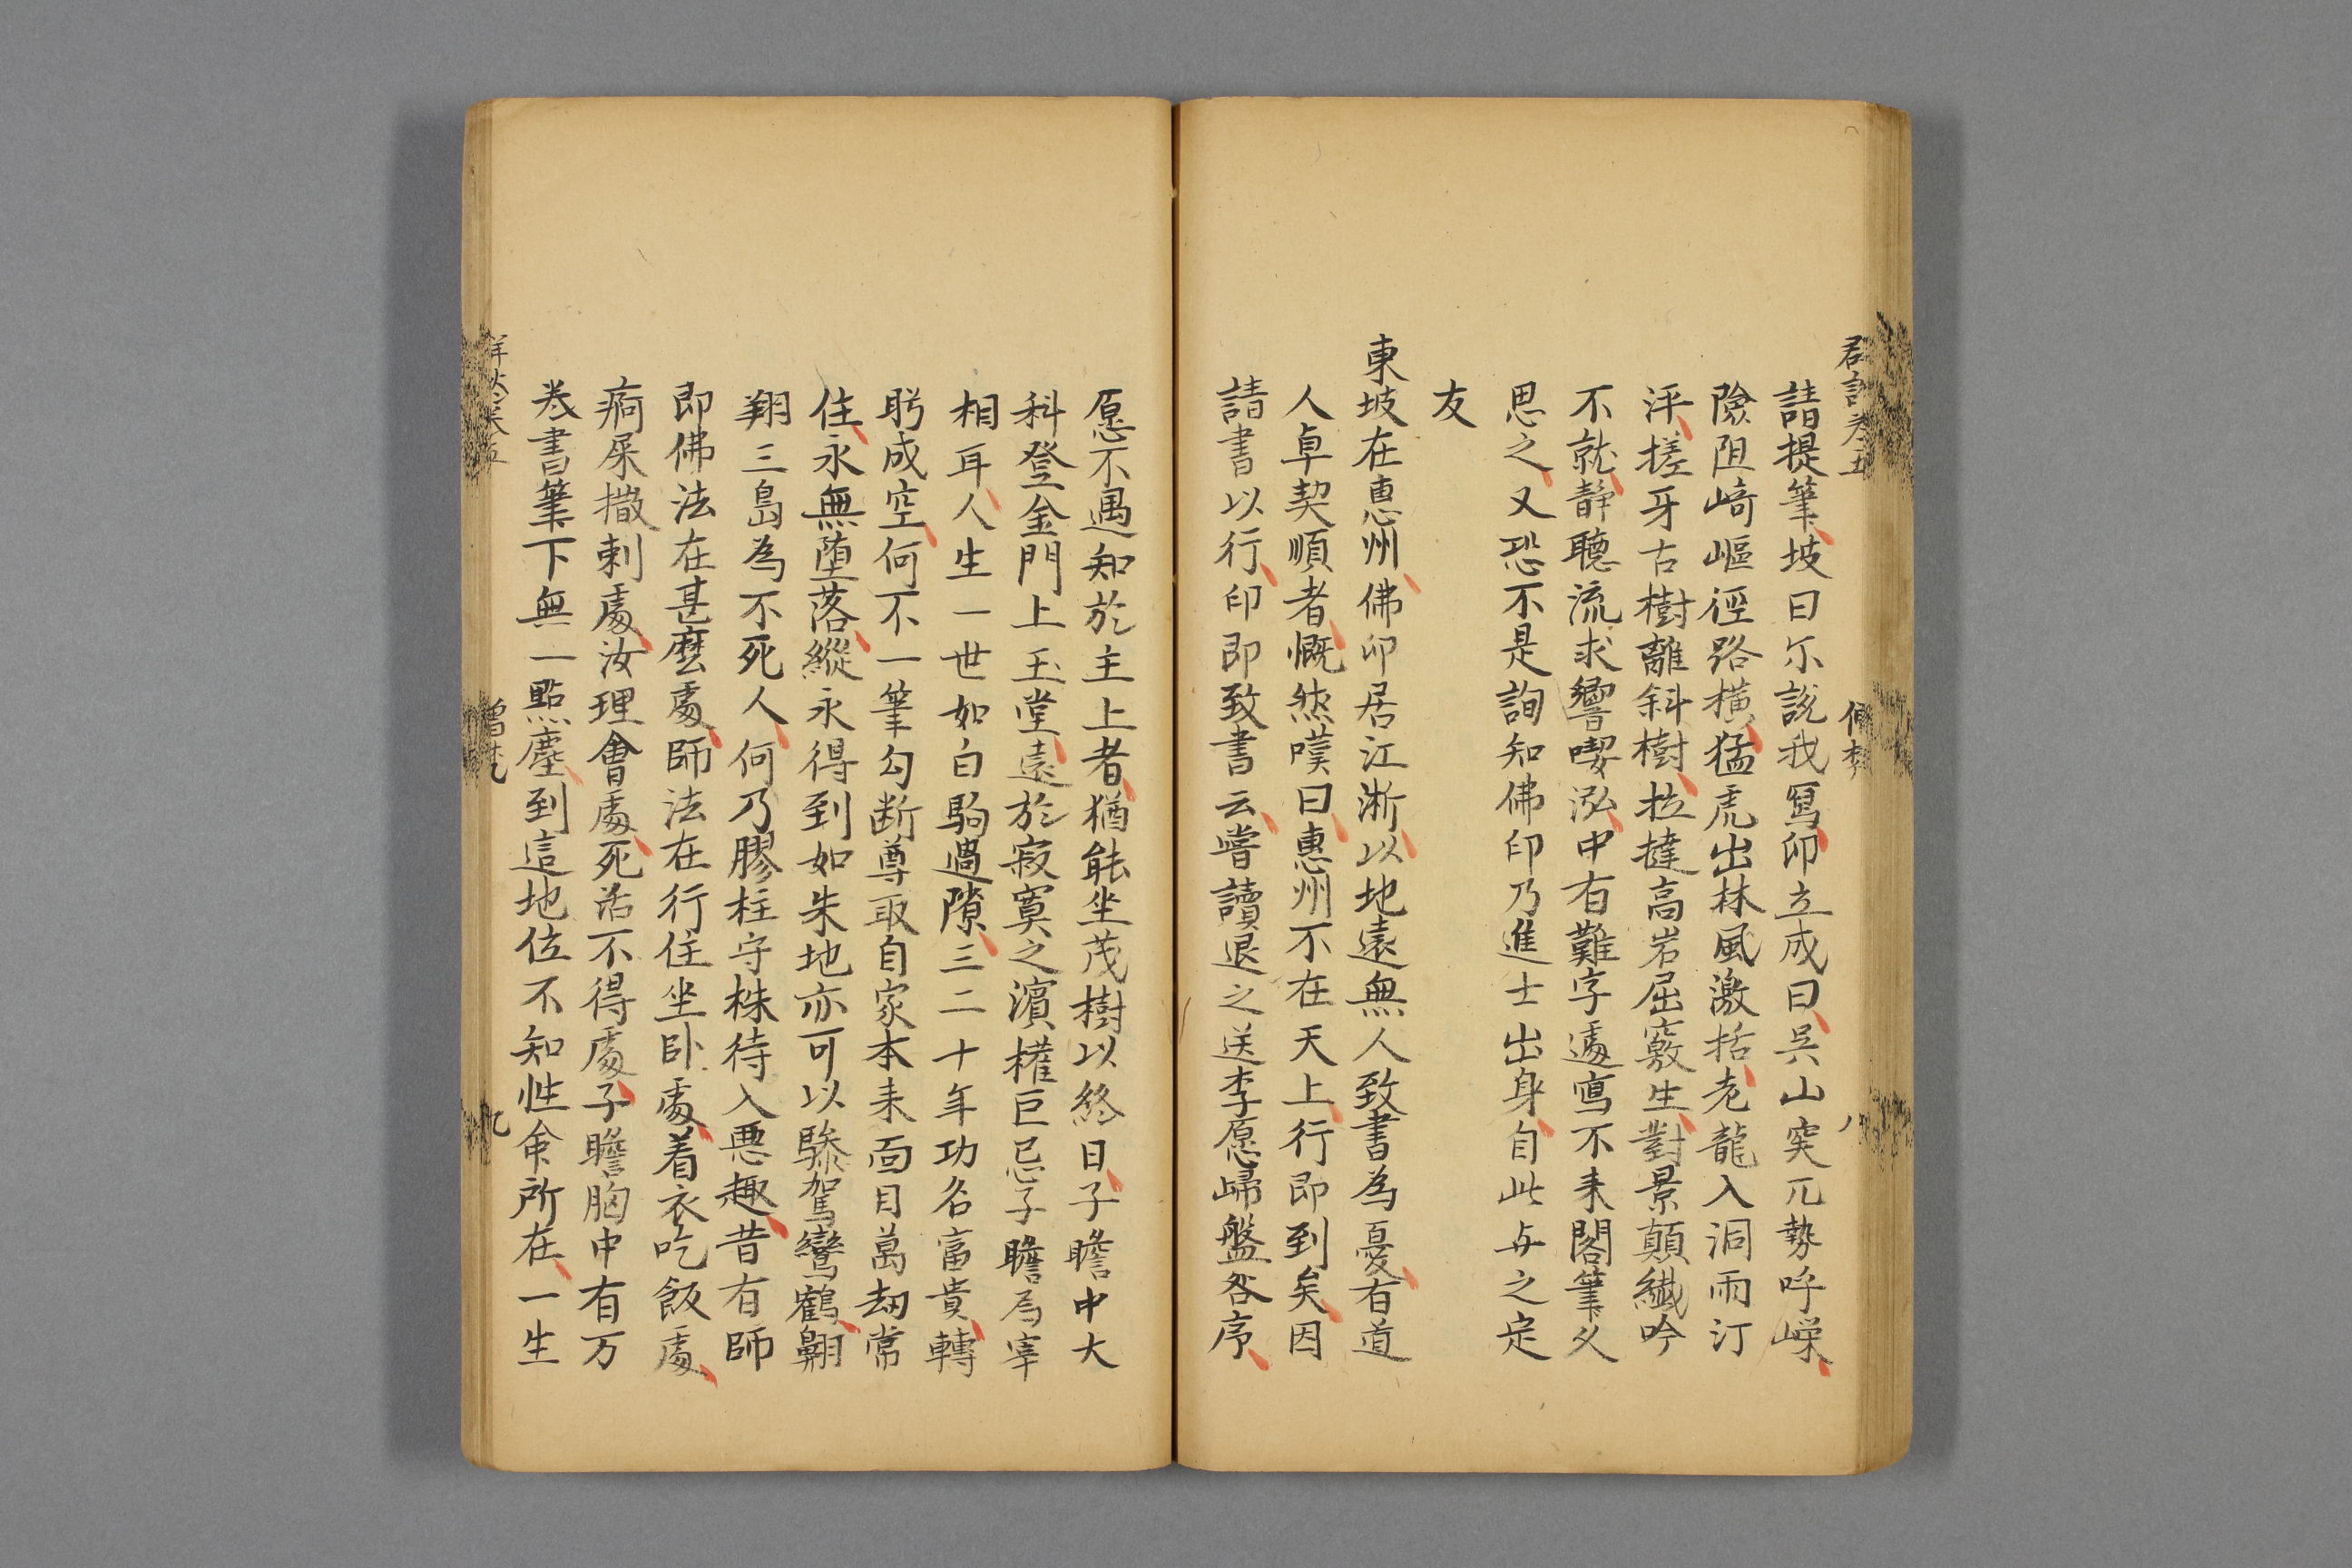 請提筆坡曰尓說我寫印立成曰呉山突兀勢呼嶸
險阻崎嶇徑路橫猛虎出林風激括老龍入洞雨汀
泙搓牙古樹離斜樹拉撻高岩屈竅生對景顛纎吟
不就靜聽流求響喫泓中有難字遽寫不来閣筆乆
思之又恐不是詢知佛印乃進士出身自此与之定
友
東坡在惠州佛印居江淅以地遠無人致書為憂有道
人卓契順者慨然嘆曰惠州不在天上行即到矣因
請書以行印即致書云嘗讀退之送李愿歸盤谷序
愿不遇知於主上者猶能坐茂樹以終日子瞻中大
科登金門上玉堂遠於寂寞之濱權臣忌子瞻為宰
相耳人生一世如白駒過隙三二十年功名富貴轉
眄成空何不一筆勾断尊取自家本来面目萬刼常
住永無堕落縱永得到如朱地亦可以驂駕鸞鶴翺
翔三島為不死人何乃膠柱守株待入悪趣昔有師
即佛法在甚麽處師法在行住坐卧處着衣吃飯處
痾屎撒剌處汝理會處死活不得處子瞻胸中有万
卷書筆下無一點塵到這地位不知性命所在一生